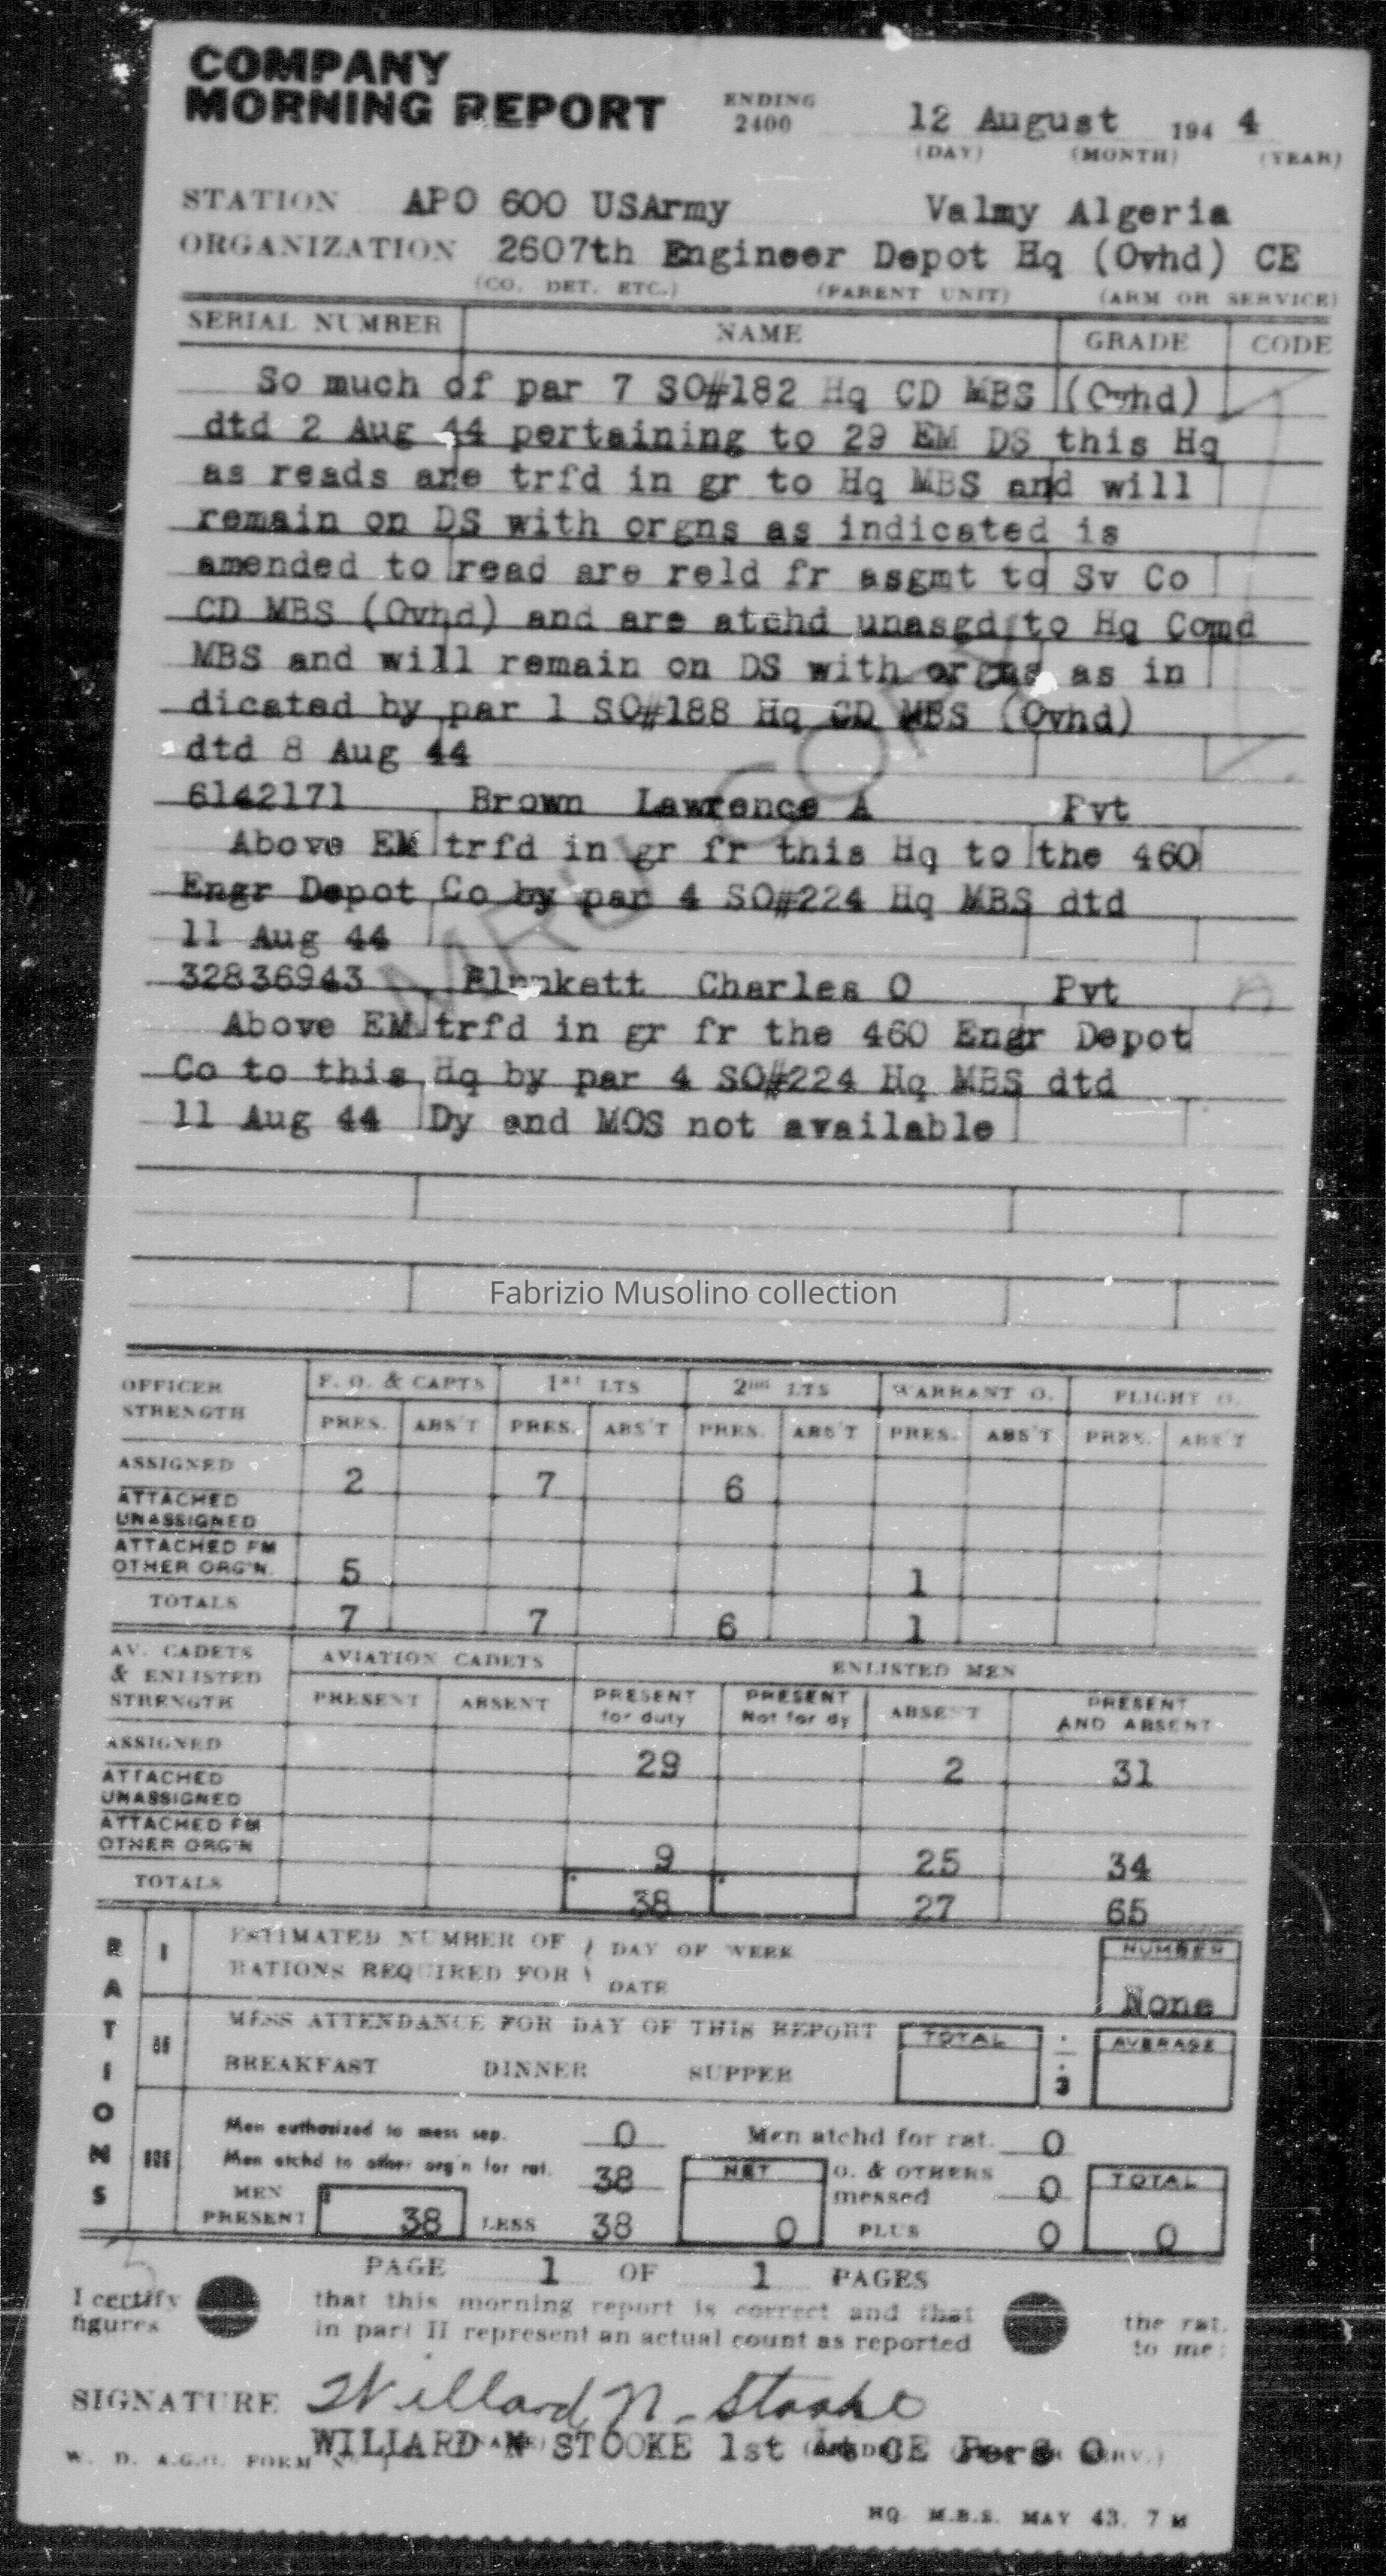 COMPANY
MORNING REPORT ENDING 2400 12 August 194 4
(DAY) (MONTH) (YEAR)
STATION APO 600 USArmy Valmy Algeria
ORGANIZATION 2607th Engineer Depot Hq (Ovhd) CE
(CO. DET. ETC.) (PARENT UNIT) (ARM OR SERVICE)
SERIAL NUMBER NAME GRADE CODE
So much of par 7 SO#182 Hq CD MBS (Ovhd)
dtd 2 Aug 44 pertaining to 29 EM DS this Hq
as reads are trfd in gr to Hq MBS and will
remain on DS with orgns as indicated is
amended to read are reld fr asgmt to Sv Co
CD MBS (Ovhd) and are atchd unasgd to Hq Comd
MBS and will remain on DS with orgns as in
dicated by par 1 SO#188 Hq CD MBS (Ovhd)
dtd 8 Aug 44
6142171 Brown Lawrence A Pvt
Above EM trfd in gr fr this Hq to the 460
Engr Depot Co by par 4 SO#224 Hq MBS dtd
11 Aug 44
32836943 Plunkett Charles O Pvt
Above EM trfd in gr fr the 460 Engr Depot
Co to this Hq by par 4 SO#224 Hq MBS dtd
11 Aug 44 Dy and MOS not available
MRU COPY
Fabrizio Musolino collection
OFFICER STRENGTH F. O. & CAPTS 1ST LTS 2ND LTS WARRANT O. FLIGHT O.
PRES. ABS'T PRES. ABS'T PRES. ABS'T PRES. ABS'T PRES. ABS'T
ASSIGNED 2 7 6
ATTACHED UNASSIGNED
ATTACHED FM OTHER ORG'N. 5 1
TOTALS 7 7 6 1
AV. CADETS & ENLISTED STRENGTH AVIATION CADETS ENLISTED MEN
PRESENT ABSENT PRESENT for duty PRESENT Not for dy ABSENT PRESENT AND ABSENT
ASSIGNED 29 2 31
ATTACHED UNASSIGNED
ATTACHED FM OTHER ORG'N 9 25 34
TOTALS 38 27 65
RATIONS
I ESTIMATED NUMBER OF RATIONS REQUIRED FOR DAY OF WEEK DATE NUMBER None
II MESS ATTENDANCE FOR DAY OF THIS REPORT TOTAL ÷ 3 AVERAGE
BREAKFAST DINNER SUPPER
III Men authorized to mess sep. 0 Men atchd for rat. 0
Men atchd to other org'n for rat. 38 NET O. & OTHERS messed 0 TOTAL
MEN PRESENT 38 LESS 38 0 PLUS 0 0
PAGE 1 OF 1 PAGES
I certify that this morning report is correct and that the rat.
figures in part II represent an actual count as reported to me:
SIGNATURE Willard N. Stooke
WILLARD N STOOKE 1st Lt CE Pers O
W. D. A.G.O. FORM
HQ. M.B.S. MAY 43. 7 M